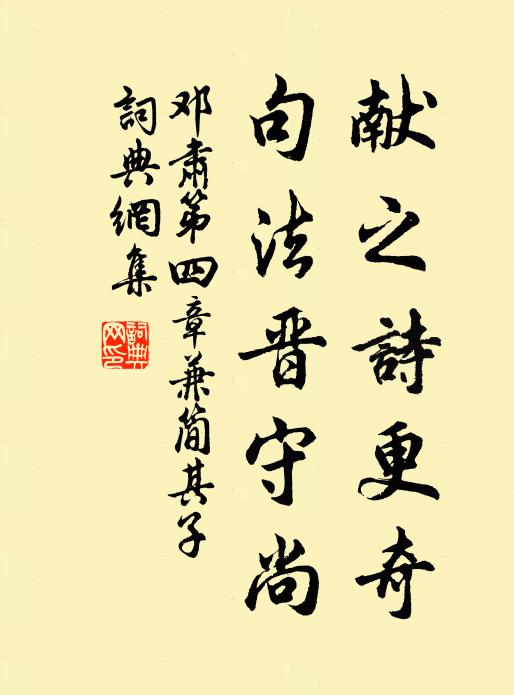 献之詩更奇
句法晋守尚
邓肃第四章兼简其子
詞典網集
詞典网印